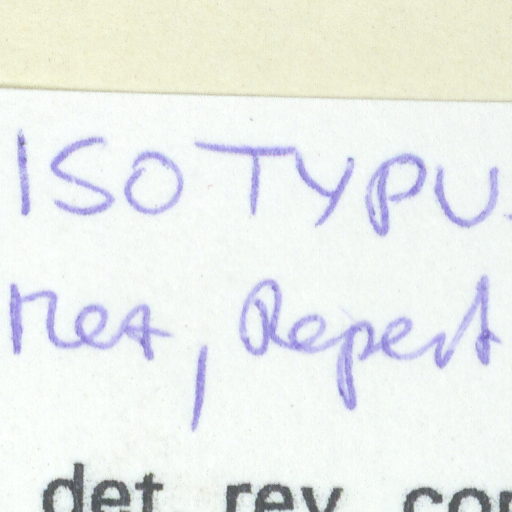 ISOTYPU
Mez, Repert
det rev con